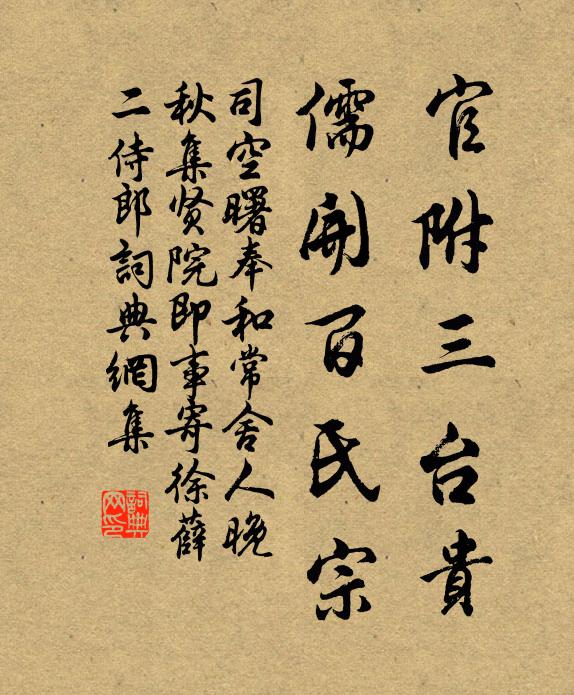 官附三台貴
儒開百氏宗
司空曙奉和常舍人晚
秋集贤院即事寄徐薛
二侍郎詞典網集
詞典网印